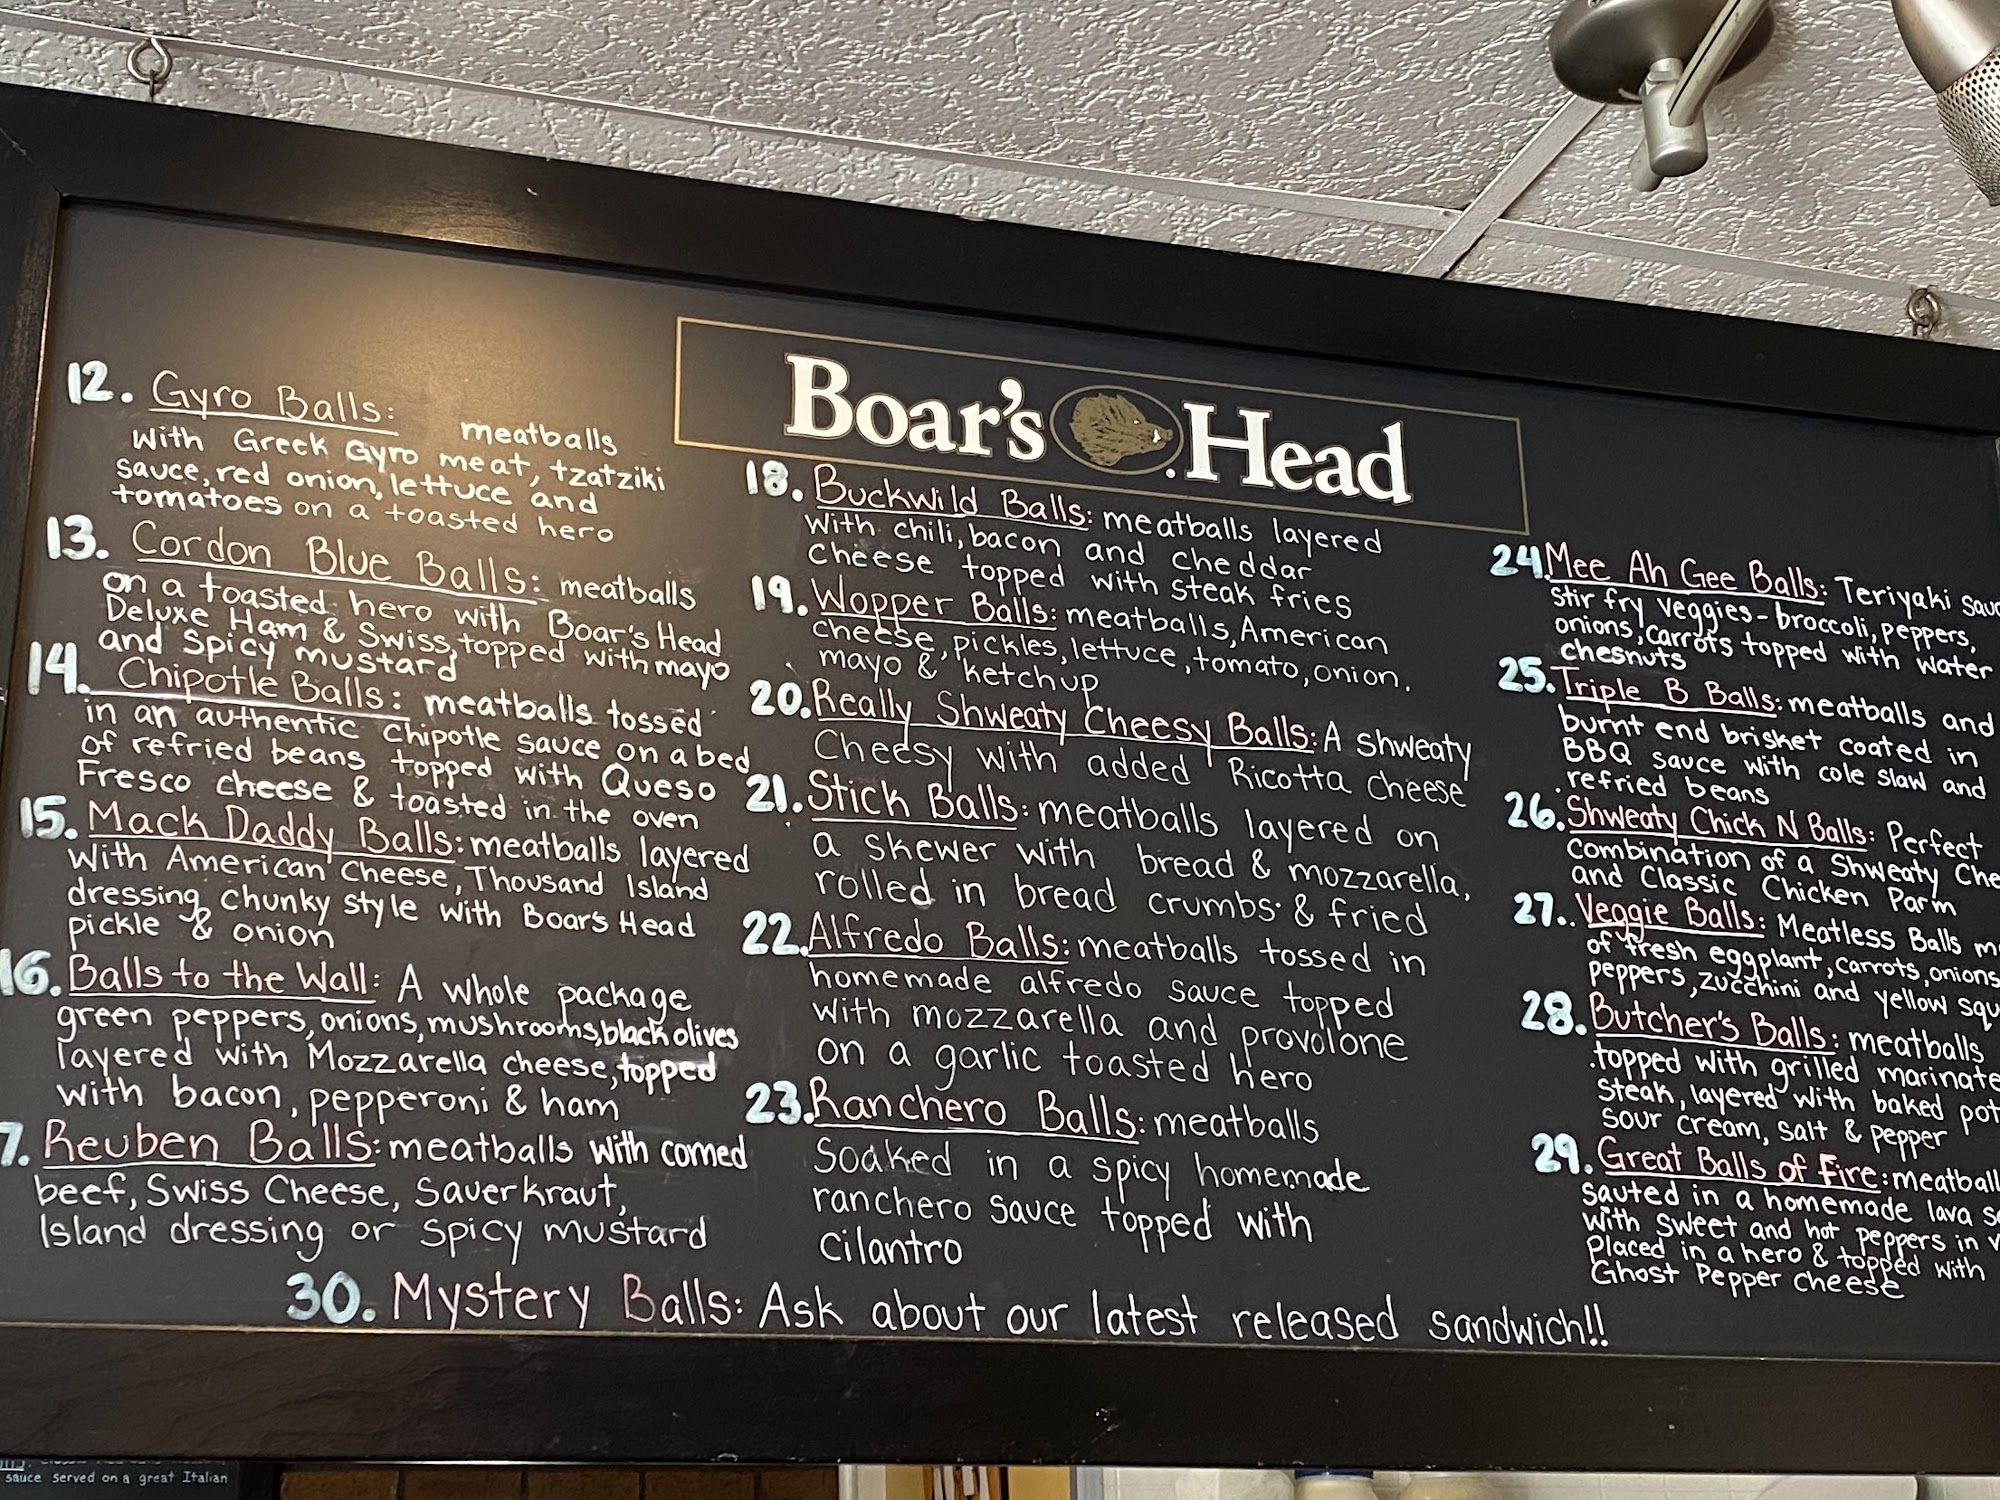 Boar's Head
12. Gyro Balls: meatballs
with Greek Gyro meat, tzatziki
sauce, red onion, lettuce and
tomatoes on a toasted hero
13. Cordon Blue Balls: meatballs
on a toasted hero with Boar's Head
Deluxe Ham & Swiss, topped with mayo
and spicy mustard
14. Chipotle Balls: meatballs tossed
in an authentic Chipotle sauce on a bed
of refried beans topped with Queso
Fresco cheese & toasted in the oven
15. Mack Daddy Balls: meatballs layered
with American Cheese, Thousand Island
dressing, chunky style with Boar's Head
pickle & onion
16. Balls to the Wall: A whole package
green peppers, onions, mushrooms, black olives
layered with Mozzarella cheese, topped
with bacon, pepperoni & ham
7. Reuben Balls: meatballs with corned
beef, Swiss Cheese, Sauerkraut,
Island dressing or spicy mustard
18. Buckwild Balls: meatballs layered
with chili, bacon and cheddar
cheese topped with steak fries
19. Wopper Balls: meatballs, American
cheese, pickles, lettuce, tomato, onion,
mayo & ketchup
20. Really Shweaty Cheesy Balls: A shweaty
Cheesy with added Ricotta cheese
21. Stick Balls: meatballs layered on
a skewer with bread & mozzarella,
rolled in bread crumbs & fried
22. Alfredo Balls: meatballs tossed in
homemade alfredo sauce topped
with mozzarella and provolone
on a garlic toasted hero
23. Ranchero Balls: meatballs
soaked in a spicy homemade
ranchero sauce topped with
cilantro
24. Mee Ah Gee Balls: Teriyaki sauc
stir fry veggies - broccoli, peppers,
onions, carrots topped with water
chesnuts
25. Triple B Balls: meatballs and
burnt end brisket coated in
BBQ sauce with cole slaw and
refried beans
26. Shweaty Chick N Balls: Perfect
combination of a Shweaty Che
and Classic Chicken Parm
27. Veggie Balls: Meatless Balls m
of fresh eggplant, carrots, onions
peppers, zucchini and yellow squ
28. Butcher's Balls: meatballs
topped with grilled marinate
steak, layered with baked pot
sour cream, salt & pepper
29. Great Balls of Fire: meatball
sauted in a homemade lava s
with sweet and hot peppers in
placed in a hero & topped with
Ghost Pepper cheese
30. Mystery Balls: Ask about our latest released sandwich!!
sauce served on a great Italian